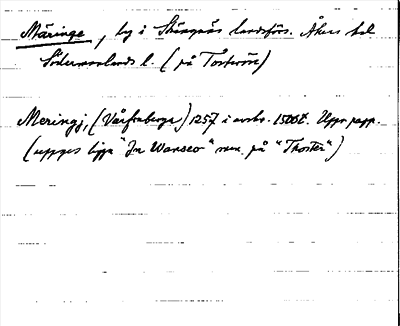 Märinge, by i Strängnäs landsförs. Åkers hd
Södermanlands l. (på Tosterön)
Meringj, (Vårfruberga) 1257 i avskr. 1500t. Uppr. papp.
(uppges ligga "In Warseo" men på "Thoster")